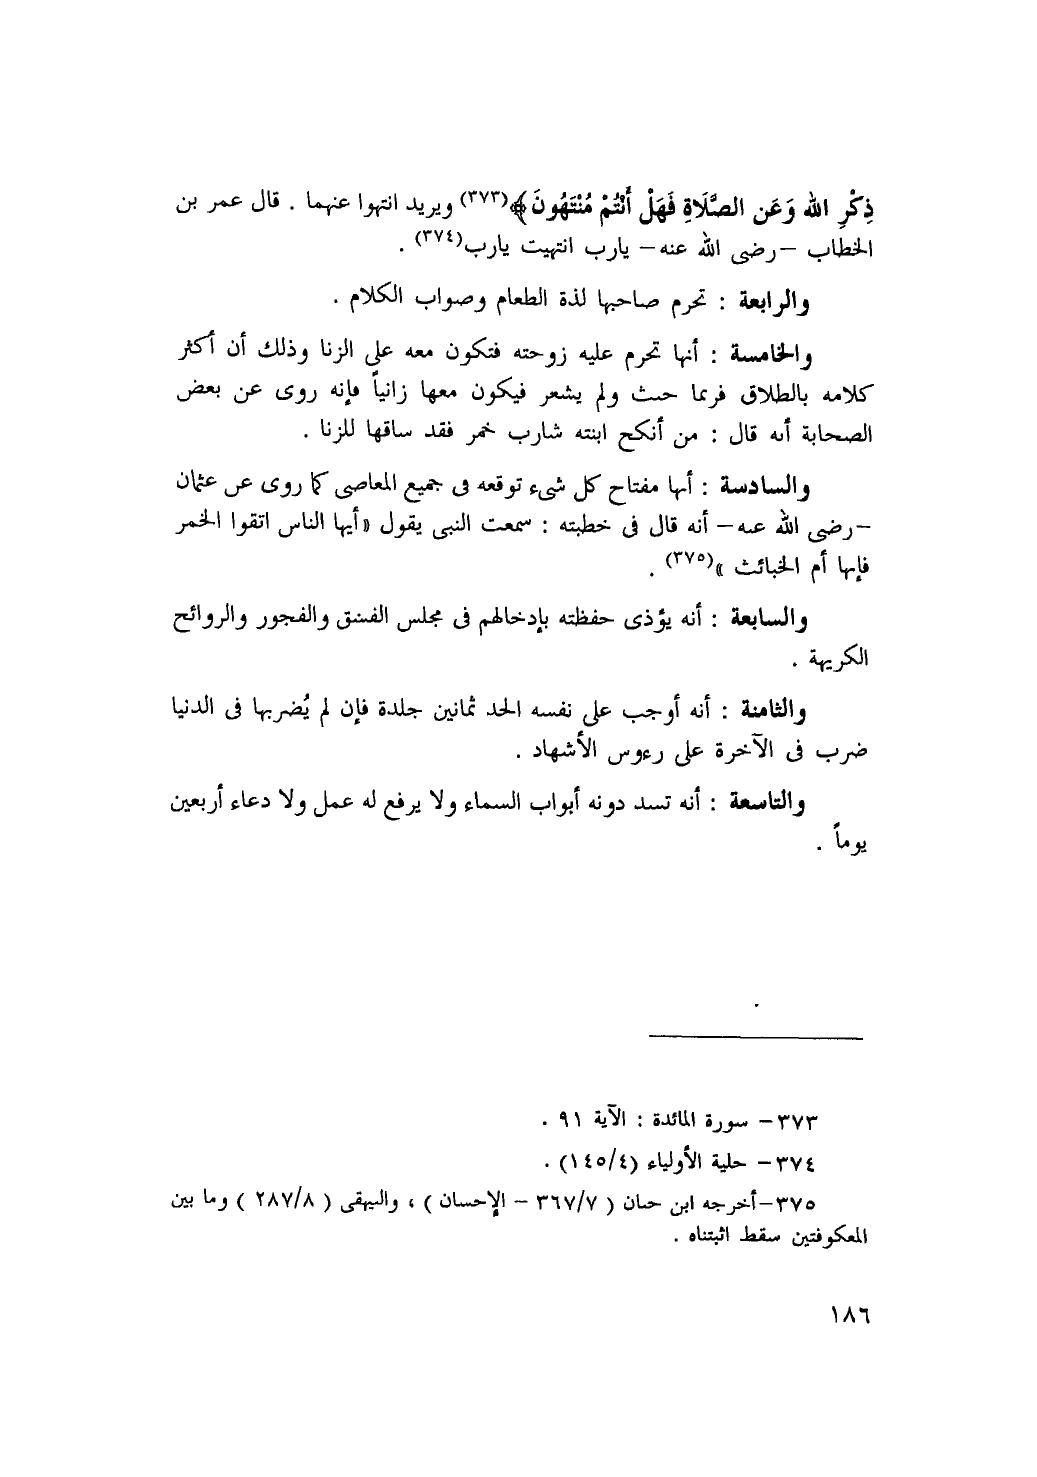 ذِكْرِ الله وَعَن الصَّلَاةِ فَهَلْ أَنْتُمْ مُنْتَهُونَ﴾(٣٧٣) ويريد انتهوا عنهما . قال عمر بن
الخطاب –رضى الله عنه– يارب انتهيت يارب(٣٧٤) .
والرابعة : تحرم صاحبها لذة الطعام وصواب الكلام .
والخامسة : أنها تحرم عليه زوجته فتكون معه على الزنا وذلك أن أكثر
كلامه بالطلاق فربما حنث ولم يشعر فيكون معها زانياً فإنه روى عن بعض
الصحابة أنه قال : من أنكح ابنته شارب خمر فقد ساقها للزنا .
والسادسة : أنها مفتاح كل شىء توقعه فى جميع المعاصى كما روى عن عثمان
–رضى الله عنه– أنه قال فى خطبته : سمعت النبى يقول «أيها الناس اتقوا الخمر
فإنها أم الخبائث »(٣٧٥) .
والسابعة : أنه يؤذى حفظته بإدخالهم فى مجلس الفسق والفجور والروائح
الكريهة .
والثامنة : أنه أوجب على نفسه الحد ثمانين جلدة فإن لم يُضربها فى الدنيا
ضرب فى الآخرة على رءوس الأشهاد .
والتاسعة : أنه تسد دونه أبواب السماء ولا يرفع له عمل ولا دعاء أربعين
يوماً .
٣٧٣– سورة المائدة : الآية ٩١ .
٣٧٤– حلية الأولياء (١٤٥/٤) .
٣٧٥–أخرجه ابن حبان ( ٣٦٧/٧ – الإحسان ) ، والبيهقى ( ٢٨٧/٨ ) وما بين
المعكوفتين سقط اثبتناه .
١٨٦